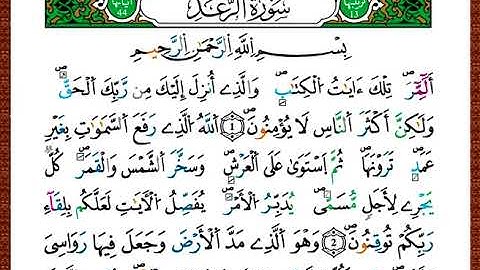 آياتها 44 سُورَةُ الرَّعْد ترتيبها 13
بِسْمِ اللَّهِ الرَّحْمَٰنِ الرَّحِيمِ
أَلَٓمِّٓرۖ تِلْكَ ءَايَٰتُ اُ۬لْكِتَٰبِۖ وَالذِے أُنزِلَ إِلَيْكَ مِن رَّبِّكَ اَ۬لْحَقُّۖ
وَلَٰكِنَّ أَكْثَرَ اَ۬لنَّاسِ لَا يُؤْمِنُونَۖ 1 اَ۬للَّهُ اُ۬لذِے رَفَعَ اَ۬لسَّمَٰوَٰتِ بِغَيْرِ
عَمَدٖ تَرَوْنَهَاۖ ثُمَّ اَ۪سْتَوَىٰ عَلَى اَ۬لْعَرْشِۖ وَسَخَّرَ اَ۬لشَّمْسَ وَالْقَمَرَۖ كُلّٞ
يَجْرِے لِأَجَلٖ مُّسَمّىٗۖ يُدَبِّرُ اُ۬لْأَمْرَۖ يُفَصِّلُ اُ۬لْأٓيَٰتِ لَعَلَّكُم بِلِقَآءِ
رَبِّكُمْ تُوقِنُونَۖ 2 وَهْوَ اَ۬لذِے مَدَّ اَ۬لْأَرْضَ وَجَعَلَ فِيهَا رَوَٰسِيَ